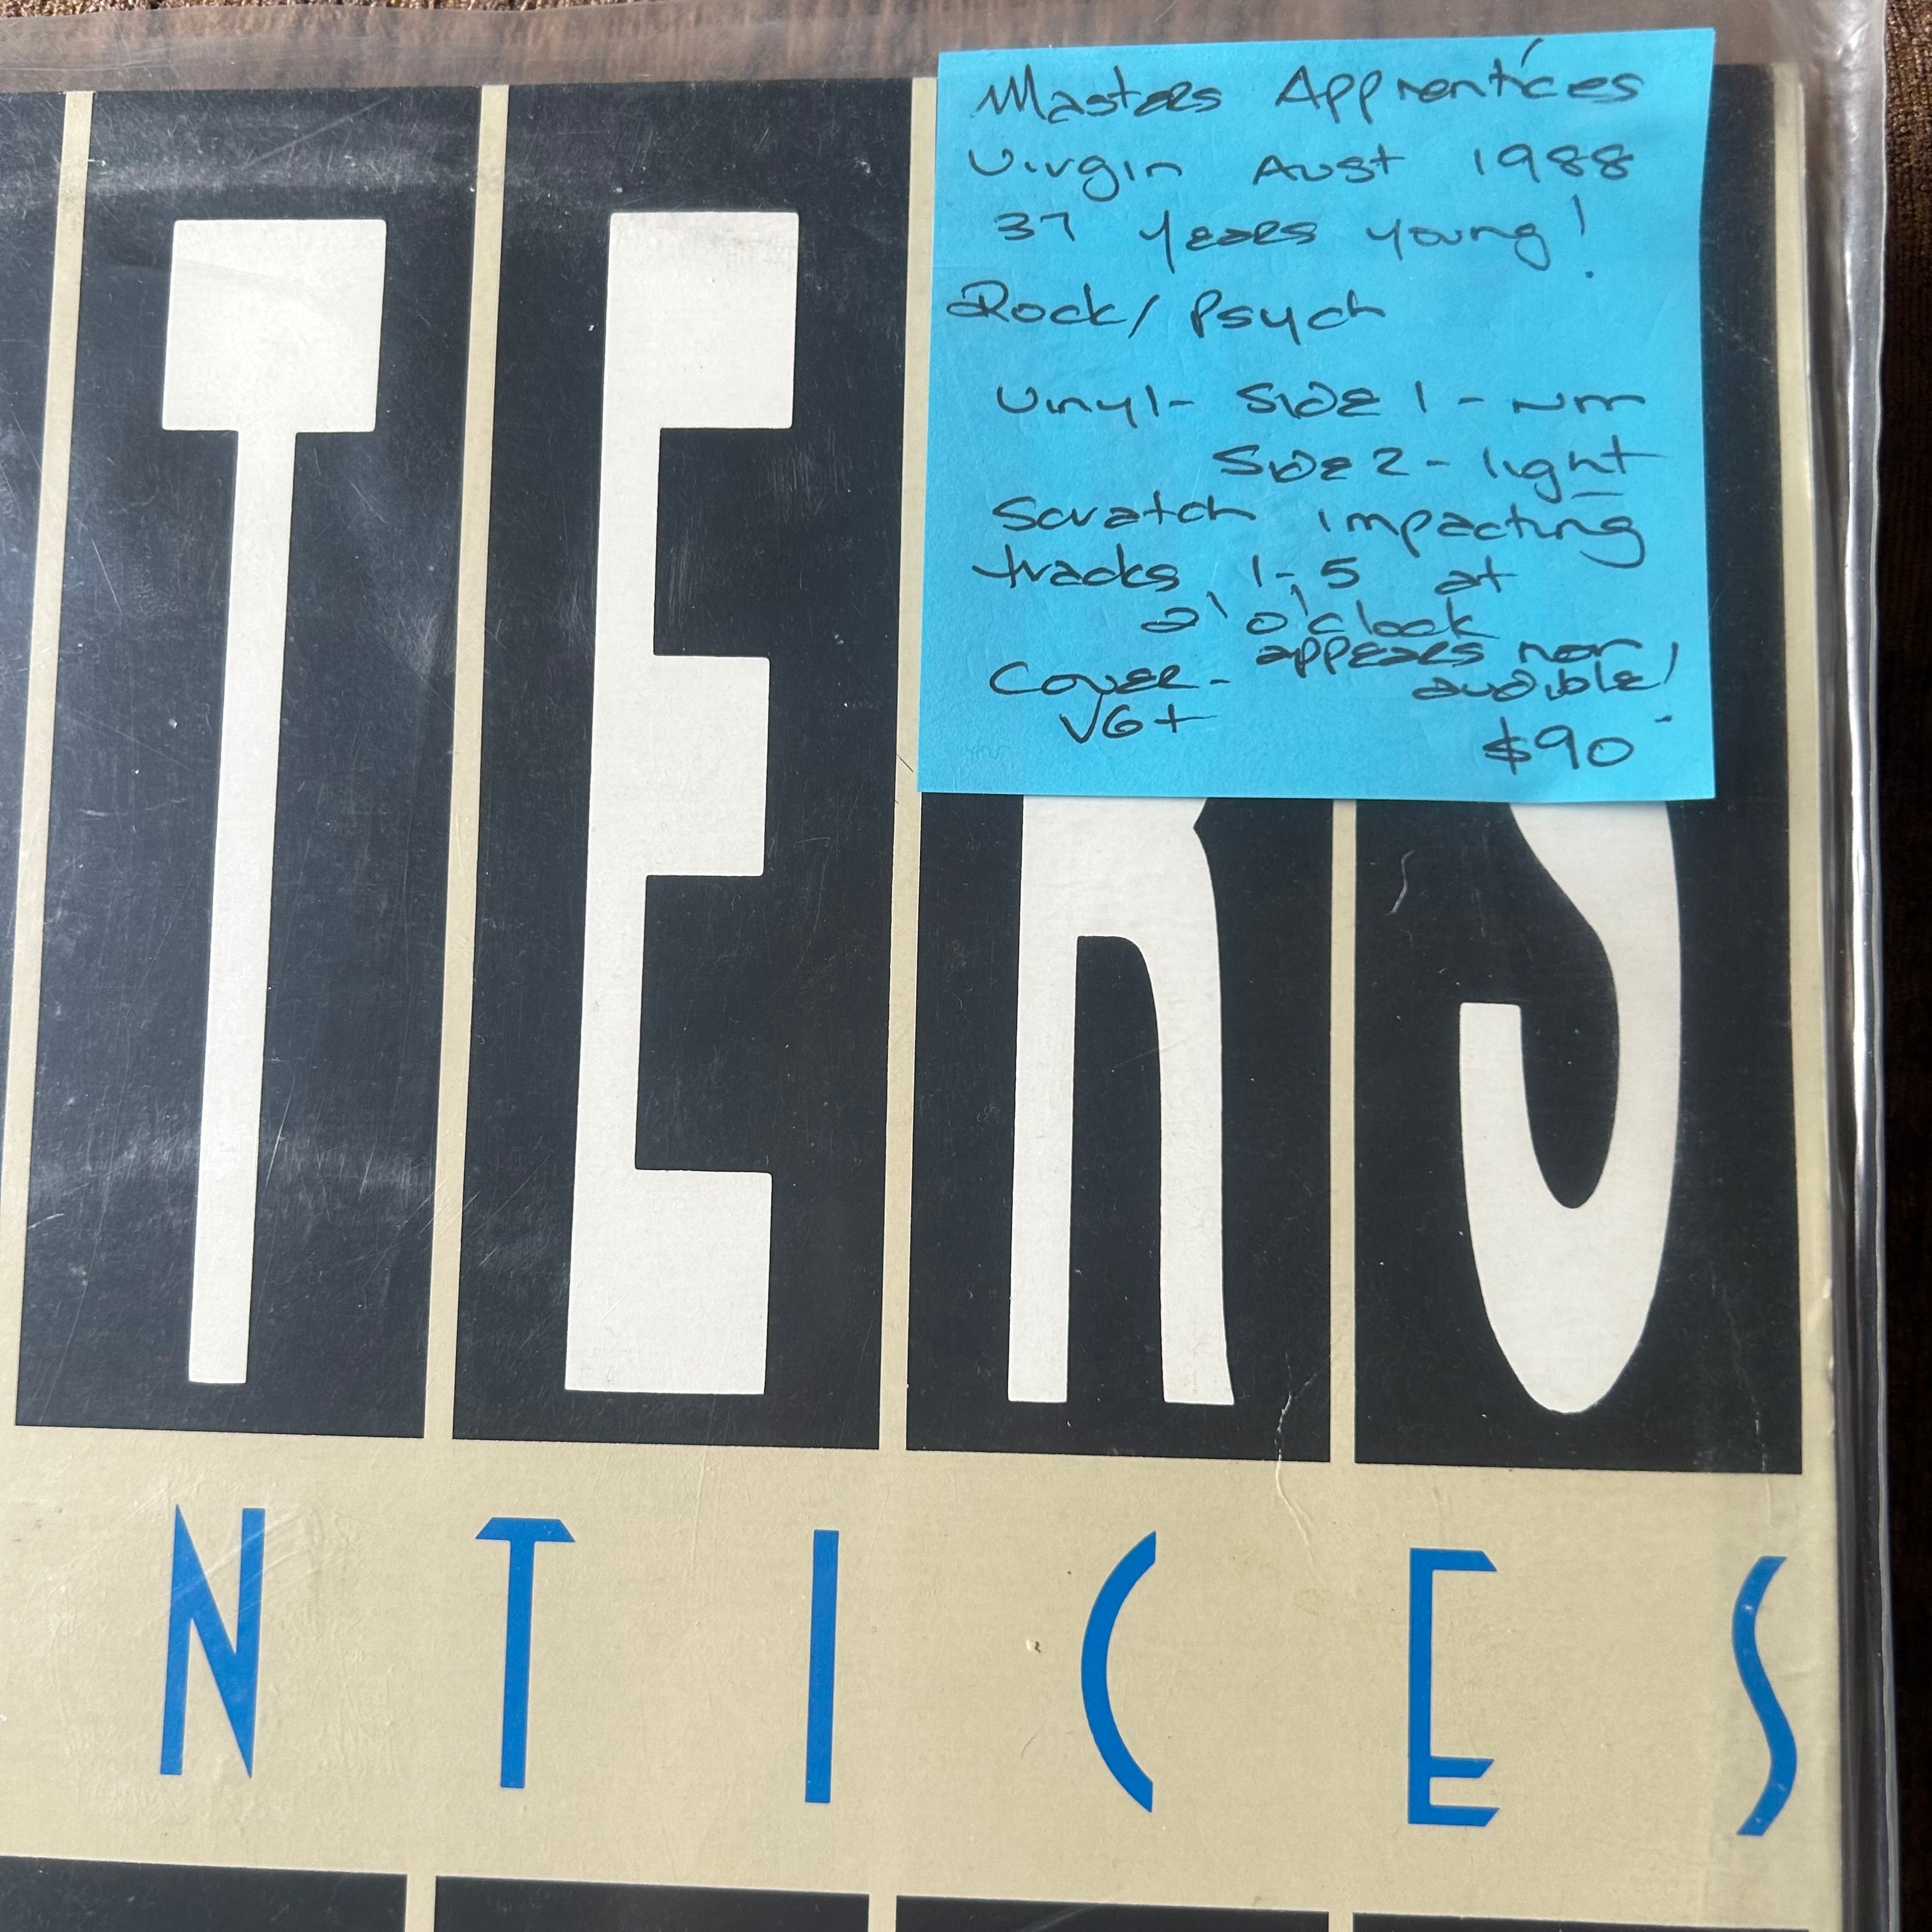 Masters Apprentices
Virgin Aust 1988
37 years young!
Rock/ Psych
Vinyl- Side 1 - NM
Side 2 - light
Scratch impacting
tracks 1-5 at
o'clock
appears
audible!
Cover-
VG+
$90
TERS
NTICES